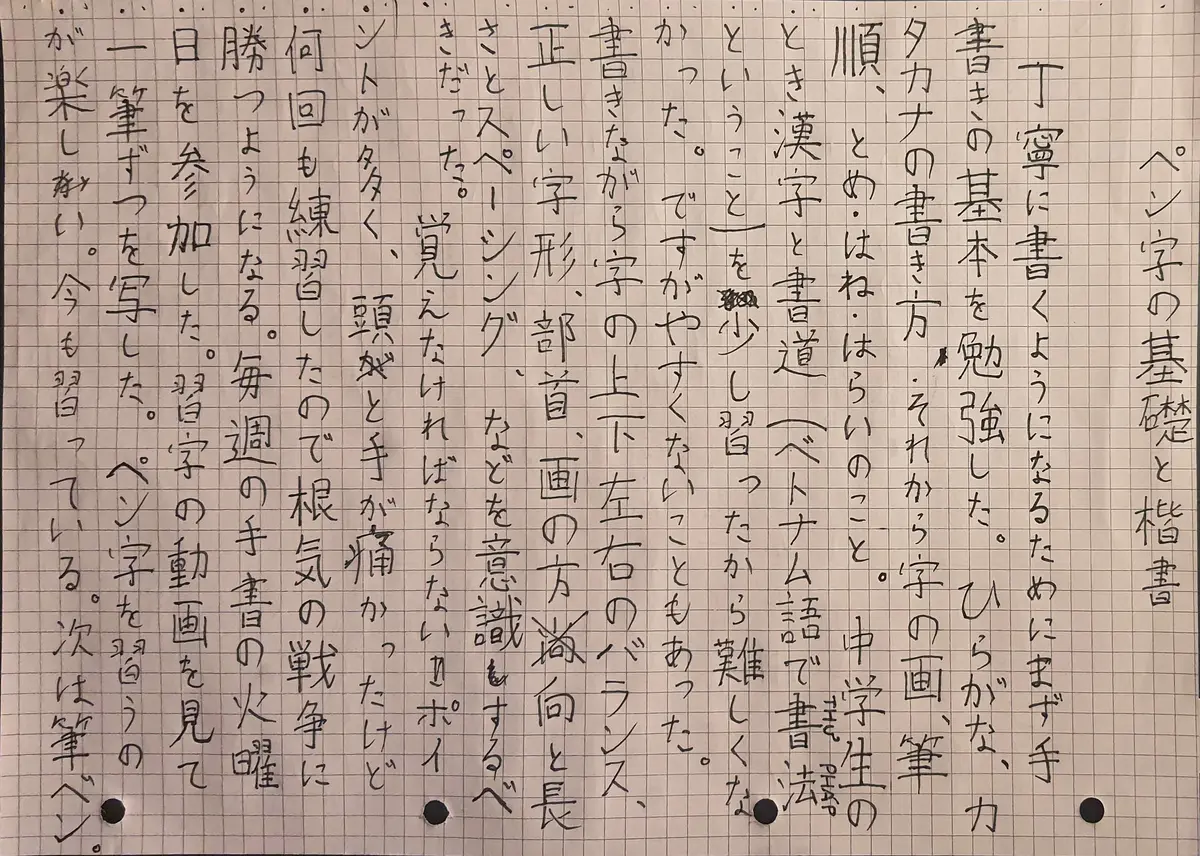 ペン字の基礎と楷書
丁寧に書くようになるためにまず手
書きの基本を勉強した。ひらがな、カ
タカナの書き方.それから字の画、筆
順、とめ・はね・はらいのこと。中学生の
とき漢字と書道(ベトナム語で書法THƯ PHÁP
ということ)を少し習ったから難しくな
かった。ですがやすくないこともあった。
書きながら字の上下左右のバランス、
正しい字形、部首、画の方向と長
さとスペーシング、などを意識するべ
きだった。覚えなければならないポイ
ントが多く、頭と手が痛かったけど
何回も練習したので根気の戦争に
勝つようになる。毎週の手書の火曜
日を参加した。習字の動画を見て
一筆ずつを写した。ペン字を習うの
が楽しい。今も習っている。次は筆ペン。